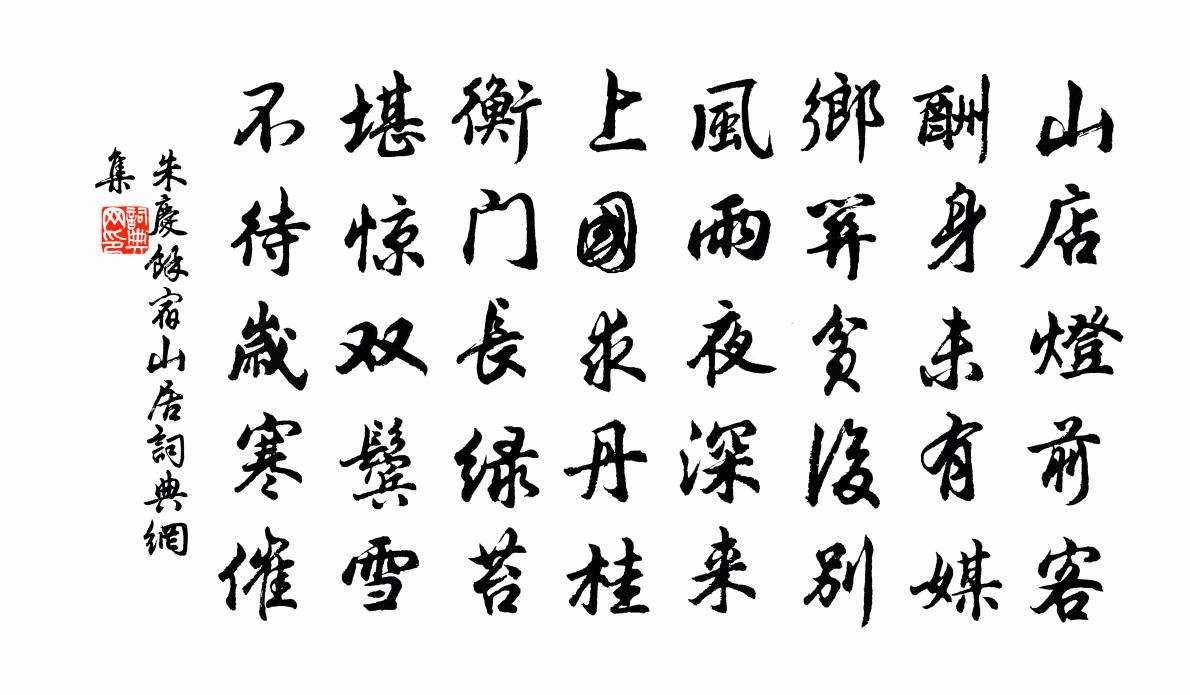 山店燈前客
酬身未有媒
鄉關貧後別
風雨夜深来
上國求丹桂
衡门長绿苔
堪惊双鬓雪
不待歲寒催
朱慶餘宿山居詞典網
集
詞典
网印